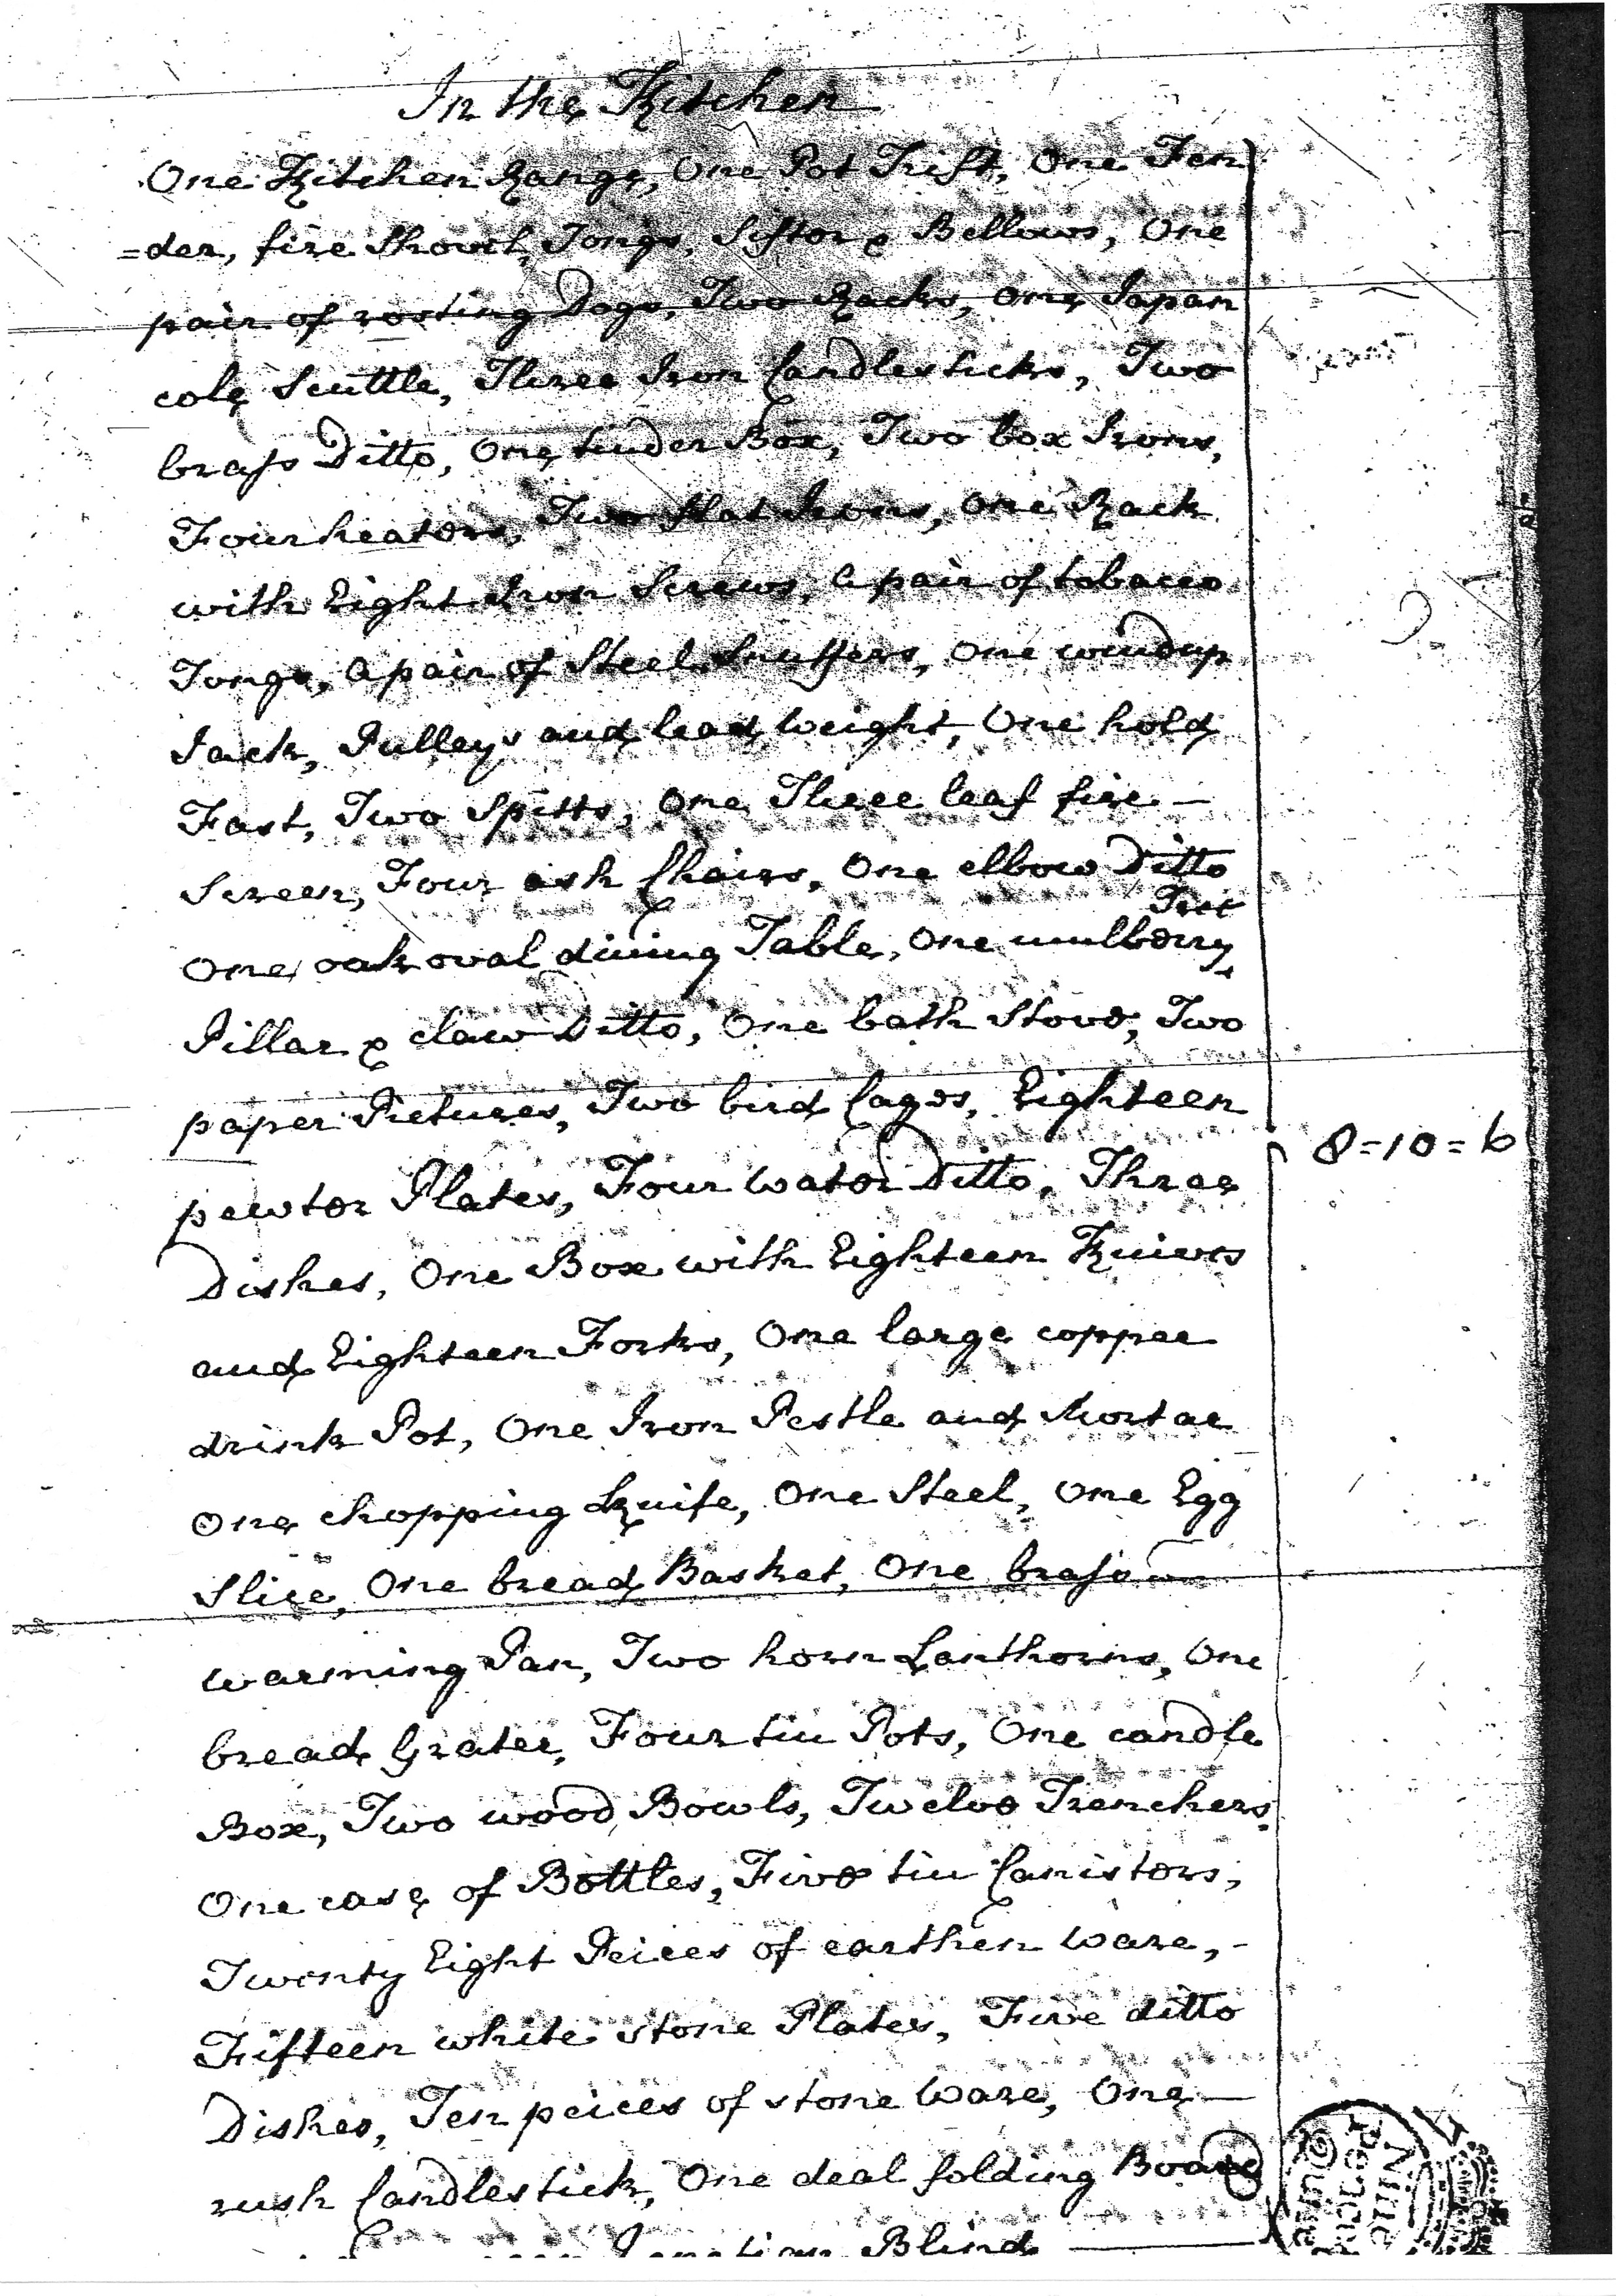 In the Kitchen
One Kitchen Range, One Pot Trift, One Fen
=der, fire Shovel, Tongs, Siftor & Bellows, One
pair of rosting Dogs, Two Racks, One Japan
cole Scuttle, Three Iron Candlesticks, Two
brass Ditto, One tinder Box, Two box Irons,
Four heators, Two flat Irons, One Rack
with Eight Iron Screws, A pair of tobacco
Tongs, A pair of Steel Snuffers, One windup
Jack, Pulleys and lead Weight, One hold
Fast, Two Spitts, One Three leaf fire —
Screen, Four ash Chairs, One elbow Ditto
Tree
One oak oval dining Table, One mulberry
Pillar & claw Ditto, One bath Stove, Two
paper Pictures, Two bird Cages, Eighteen
pewtor Plates, Four Wator Ditto, Three
8=10=6
Dishes, One Box with Eighteen Knives
and Eighteen Forks, One large copper
drink Pot, One Iron Pestle and Mortar
One chopping Knife, One Steel, One Egg
Slice, One bread Basket, One brass
warming Pan, Two horn Lanthorns, One
bread Grater, Four tin Pots, One candle
Box, Two wood Bowls, Twelve Trenchers
One case of Bottles, Five tin Canistors,
Twenty Eight Peices of earthen Ware, -
Fifteen white stone Plates, Five ditto
Dishes, Ten peices of stone Ware, One —
rush Candlestick, One deal folding Board
Blind